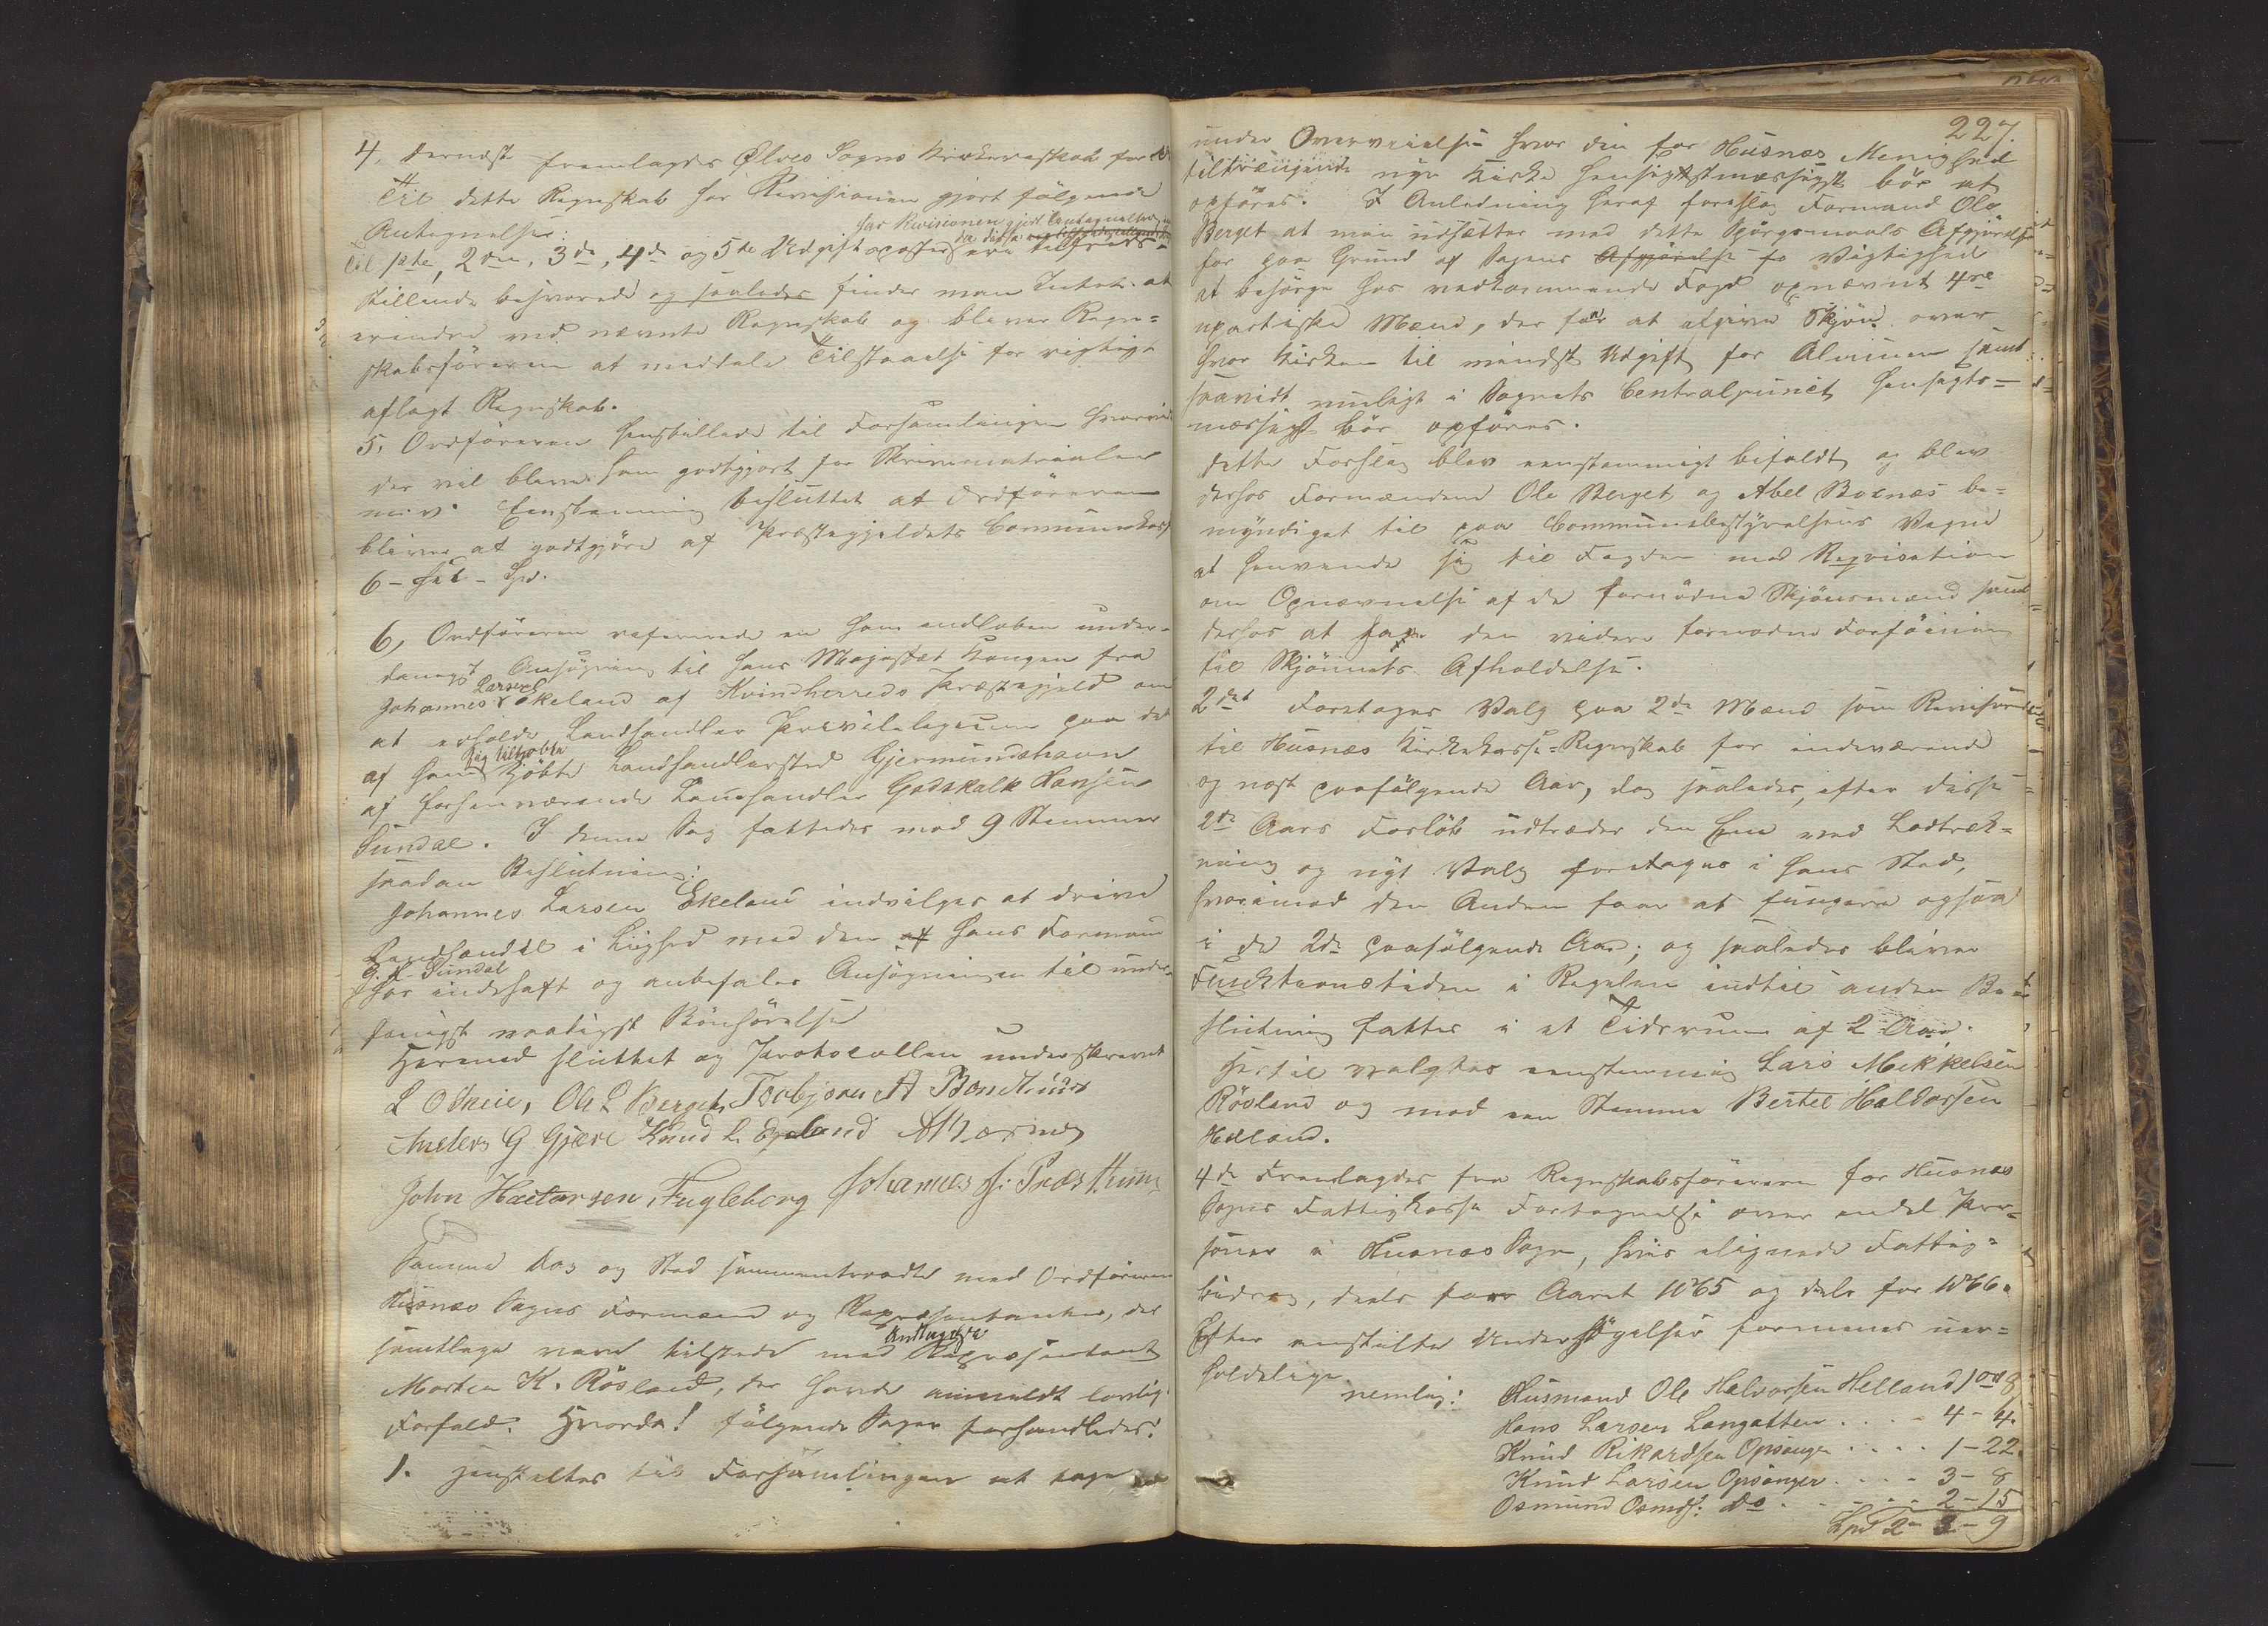 4, Dernæst fremlagdes Ølves Sogns Kirkeregnskab for
Til dette Regnskab har Revisionen gjort følgende
Antegnelse:
har Revisionen gjort Antegnelser
da disse
Til 1ste, 2den, 3de, 4de og 5te Udgiftsposter ere tilfreds-
stillende besvarede og saaledes finder man Intet at
erindre ved nævnte Regnskab og bliver Regn=
skabsføreren at meddele Tilstaaelse for rigtigt
aflagt Regnskab.
5, Ordføreren henstillede til Forsamlingen hvorvidt
der vil blive ham godtgjort for Skrivematerialer
m. v. Eenstemmig besluttet at Ordføreren
bliver at godtgjøre af Præstegjeldets Communekasse
6 - sex - Spd.
6, Ordføreren refererede en ham indløben under-
danigst Ansøgning til Hans Majestæt Kongen fra
Larsen
Johannes Ekeland af Kvindherreds Præstegjeld om
at erholde Landhandler Privilegium paa det
sig tilkjøbte
af ham kjøbte Landhandlersted Gjermundshavn
af forhenværende Landhandler Godskalk Hansen
Sundal. I denne Sag fattedes med 9 Stemmer
saadan Beslutning:
Johannes Larsen Ekeland indvilges at drive
Landhandel i Liighed med den af hans Formand
G. H. Sundal
har indehaft og anbefales Ansøgningen til under-
danigst naadigst Bønhørelse
Hermed sluttet og Protocollen underskrevet
L Odneie, Ole L Berget, Torbjørn A Bondhuus
Anders G Gjære Knud L. Egeland ABoenæs
John Haktorsen, Fugleberg Johannes J: Præsthuus
Samme Dag og Sted sammentraadte med Ordføreren
Husnæs Sogns Formænd og Repræsentanter, der
Undtagelse
samtlige vare tilstede med Repræsentant
Morten K. Røsland, der havde anmeldt lovlig
Forfald. Hvorda! følgende Sager forhandledes:
1. Henstilles til Forsamlingen at tage
227.
under Overveielse hvor den for Husnæs Menighed
tiltrængende nye Kirke hensigtsmæssigst bør at
opføres. I Anledning heraf foreslog Formand Ole
Berget at man udsætter med dette Spørgsmaals Afgjørelse
for paa Grund af Sagens Afgjørelse fo Vigtighed
at besørge hos vedkommende Foged opnævnt 4re
upartiske Mænd, der faar at afgive Skjøn over
hvor Kirken til mindst Udgift for Almuen samt
saavidt muligt i Sognets Centralpunct hensigts=
mæssigst bør opføres.
Dette Forslag blev eenstemmigt bifaldt og blev
derhos Formændene Ole Berget og Abel Boenæs be=
myndiget til paa Communebestyrelsens Vegne
at henvende sig til Fogden med Reqvisition
om Opnævnelse af de fornødne Skjønsmænd samt
derhos at føie den videre fornødne Forføining
til Skjønnets Afholdelse.
2det Foretoges Valg paa 2de Mænd som Revisorer
til Husnæs Kirkekasse=Regnskab for indeværende
og næst paafølgende Aar, dog saaledes, efter disse
2de Aars Forløb udtræder den Ene ved Lodtræk=
ning og nyt Valg foretages i hans Sted,
hvorimod den Anden faar at fungere ogsaa
i de 2de paafølgende Aar; og saaledes bliver
Functionstiden i Regelen indtil anden Be=
slutning fattes i et Tidsrum af 2 Aar.
Hertil valgtes eenstemmig Lars Mekkelsen
Røvland og med een Stemme Bertel Haldorsen
Helland.
4de Fremlagdes fra Regnskabsføreren for Husnæs
Sogns Fattigkasse Fortegnelse over endel Per=
soner i Husnæs Sogn, hvis alignede Fattig=
bidrag, deels for Aaret 1865 og dels for 1866.
Efter anstillte Undersøgelser formenes uer=
holdelige
nemlig: Husmand Ole Halvorsen Helland 1 ort 8
Hans Larsen Langatten .... 4 - 4.
Knud Rikardsen Opsanger .... 1 - 22.
Knud Larsen Opsanger .... 3 - 8
Osmund Osmds: do ..... 2 - 15
Spd 2 - 3 - 9